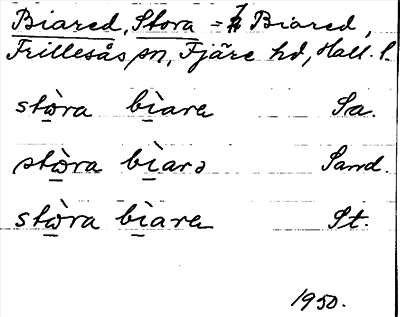 Biared, Stora = Biared,
Frillesås sn, Fjäre hd, Hall. l.
stὼra bìara Sa.
stὼra bìarə Sand.
stὼra bìara St.
1950.